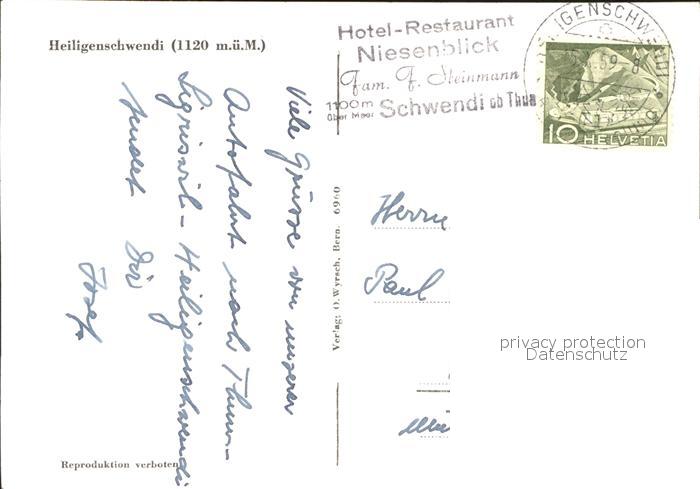 Heiligenschwendi (1120 m.ü.M.)
Hotel-Restaurant
Niesenblick
Fam. F. Steinmann
1100m
über Meer Schwendi ob Thun
HEILIGENSCHWENDI
59-8
10 HELVETIA
Viele Grüsse von unserer
Autofahrt nach Thun-
Sigriswil-Heiligenschwendi
sendet Dir
Josef
Verlag: O. Wyrsch, Bern. 6960
Herrn
Paul
privacy protection
Datenschutz
Reproduktion verboten